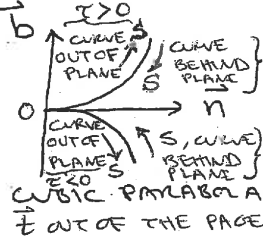 b
τ>0
CURVE
OUT OF
PLANE
S
S
CURVE
BEHIND
PLANE
O
n
CURVE
OUT OF
PLANE
τ<0
S
S, CURVE
BEHIND
PLANE
CUBIC PARABOLA
t OUT OF THE PAGE